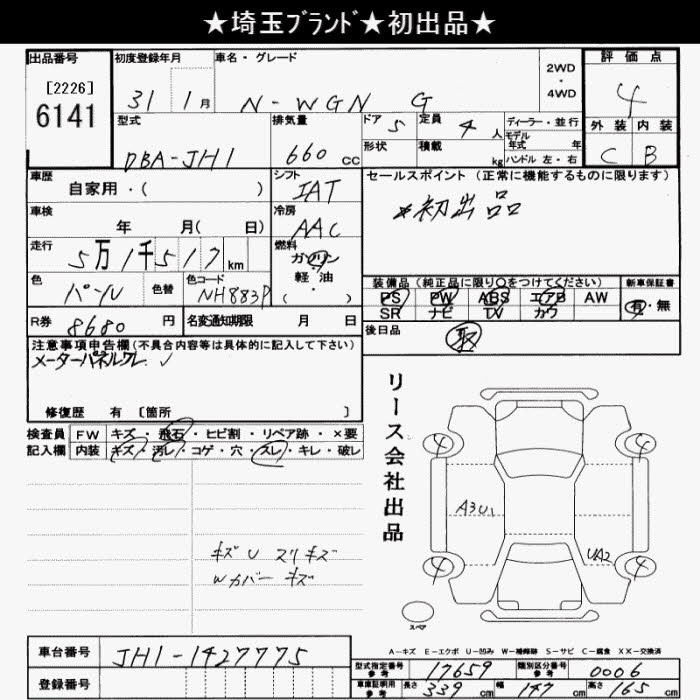 ★埼玉ﾌﾞﾗﾝﾄﾞ★初出品★
出品番号
[2226]
6141
初度登録年月
31 1月
車名・グレード
N-WGN G
2WD
・
4WD
評価点
4
外装 内装
C B
型式
DBA-JH1
排気量
660 cc
ドア 5
定員 4 人
形状
積載 kg
ディーラー・並行
モデル年式 年
ハンドル 左・右
車歴
自家用・( )
シフト
IAT
セールスポイント (正常に機能するものに限ります)
*初出品
車検
年 月( 日)
冷房
AAC
走行
5万1千517km
燃料
ガソリン
軽・油
・( )
色
パール
色替
色コード
NH883P
装備品(純正品に限り○をつけてください)
新車保証書
PS PW ABS エアB AW
SR ナビ TV カワ
有・無
R券 8680 円
名変通知期限 月 日
後日品
取
注意事項申告欄(不具合内容等は具体的に記入して下さい)
メーターパネルクレ
修復歴 有 [箇所 ]
検査員
記入欄
FW キズ・飛石・ヒビ割・リペア跡・×要
内装 キズ・汚レ・コゲ・穴・スレ・キレ・破レ
リース会社出品
4 4
A3U1
UA2
4 4
スペア
キズU スリキズ
Wカバー キズ
A-キズ E-エクボ U-凹み W-補修跡 S-サビ C-腐食 XX-交換済
車台番号
JH1-1427775
登録番号
型式指定番号
参考
17659
類別区分番号
参考
0006
車庫証明用
参考
長さ 339 cm
幅 147 cm
高さ 165 cm